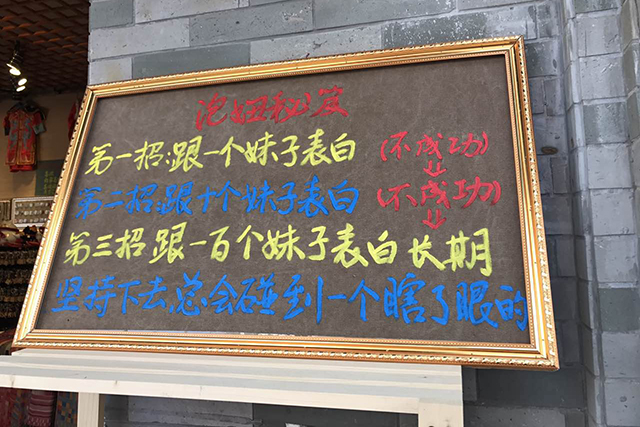 泡妞秘笈
第一招:跟一个妹子表白 (不成功)
第二招:跟十个妹子表白 (不成功)
第三招跟一百个妹子表白长期
坚持下去总会碰到一个瞎了眼的